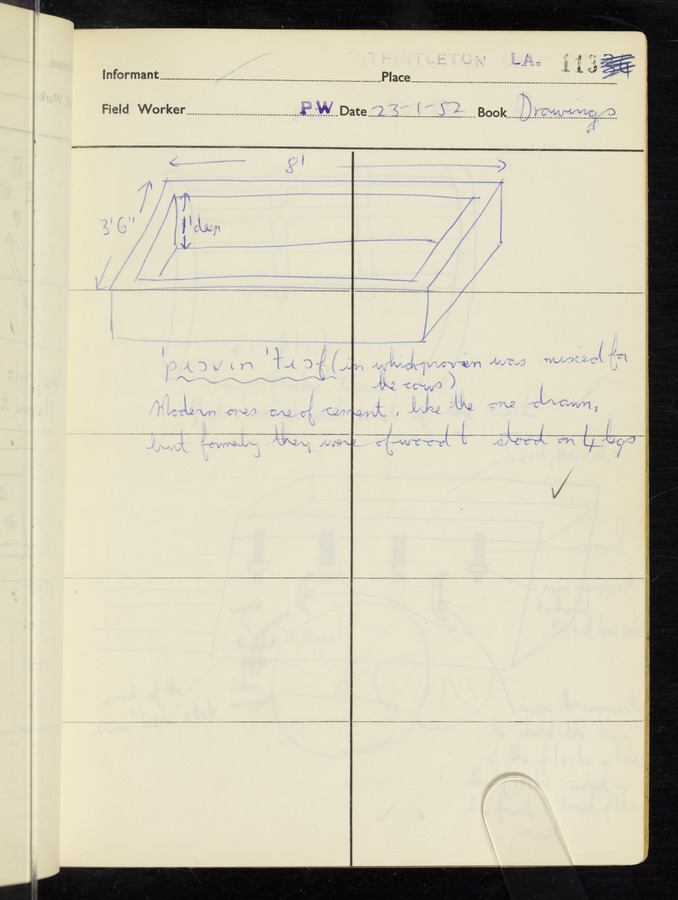 THISTLETON LA. 113
Informant Place
Field Worker PW Date 23-1-52 Book Drawings
8'
3'6"
1' deep
(in which proven was mixed for
the cows)
Modern ones are of cement, like the one drawn,
but formerly they were of wood & stood on 4 legs